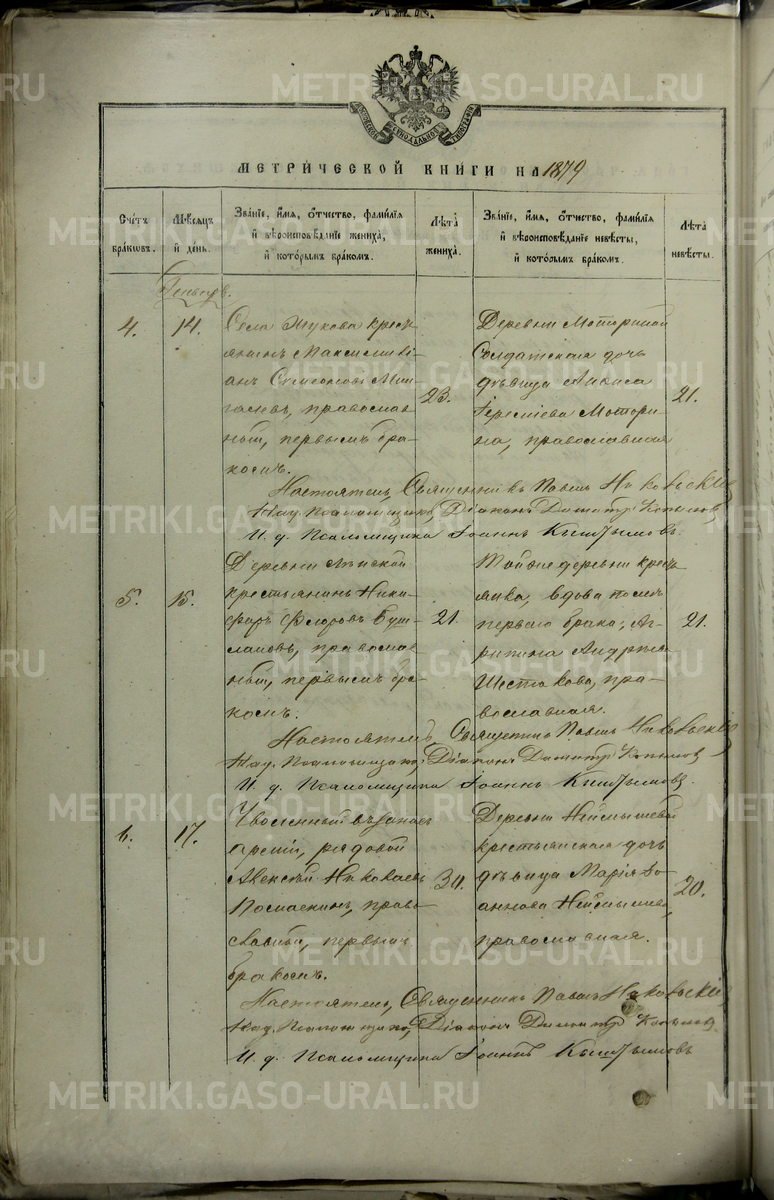 МЕТРИЧЕСКОЙ КНИГИ НА 1879
Счетъ браковъ.
Мѣсяцъ й день.
Званіе, имя, отчество, фамилія й вѣроисповѣданіе жениха, й которымъ бракомъ.
Лѣта жениха.
Званіе, имя, отчество, фамилія й вѣроисповѣданіе невѣсты, й которымъ бракомъ.
Лѣта невѣсты.
4.
14.
Села Жукова кресть-
янинъ Максимилі-
анъ Симеоновъ
православ-
ный, первымъ бра-
комъ.
23.
Деревни Моториной
Солдатская дочь
дѣвица Аниса
Іереміева Мотори-
на, православная
21.
Настоятель, Священникъ Павелъ
Над. Псаломщика, Діаконъ Димитр. Копыловъ
И. д. Псаломщика Іоаннъ Кыштымовъ.
5.
15.
Деревни
крестьянинъ Ники-
форъ Феодоровъ
православ-
ный, первымъ бра-
комъ.
21.
Тойже деревни кресть-
янка, вдова послѣ
перваго брака, Аг-
рипина Андреева
Шестакова, пра-
вославная.
21.
Настоятель, Священникъ Павелъ
Над. Псаломщика, Діаконъ Димитр. Копыловъ
И. д. Псаломщика Іоаннъ Кыштымовъ.
6.
17.
Уволенный въ запасъ
арміи, рядовой
Алексѣй Николаевъ
право-
славный, первымъ
бракомъ.
30.
Деревни Неймышевой
крестьянская дочь
дѣвица Марія Іо-
аннова Неймышева,
православная.
20.
Настоятель, Священникъ Павелъ
Над. Псаломщика, Діаконъ Димитр. Копыловъ
И. д. Псаломщика Іоаннъ Кыштымовъ
METRIKI.GASO-URAL.RU